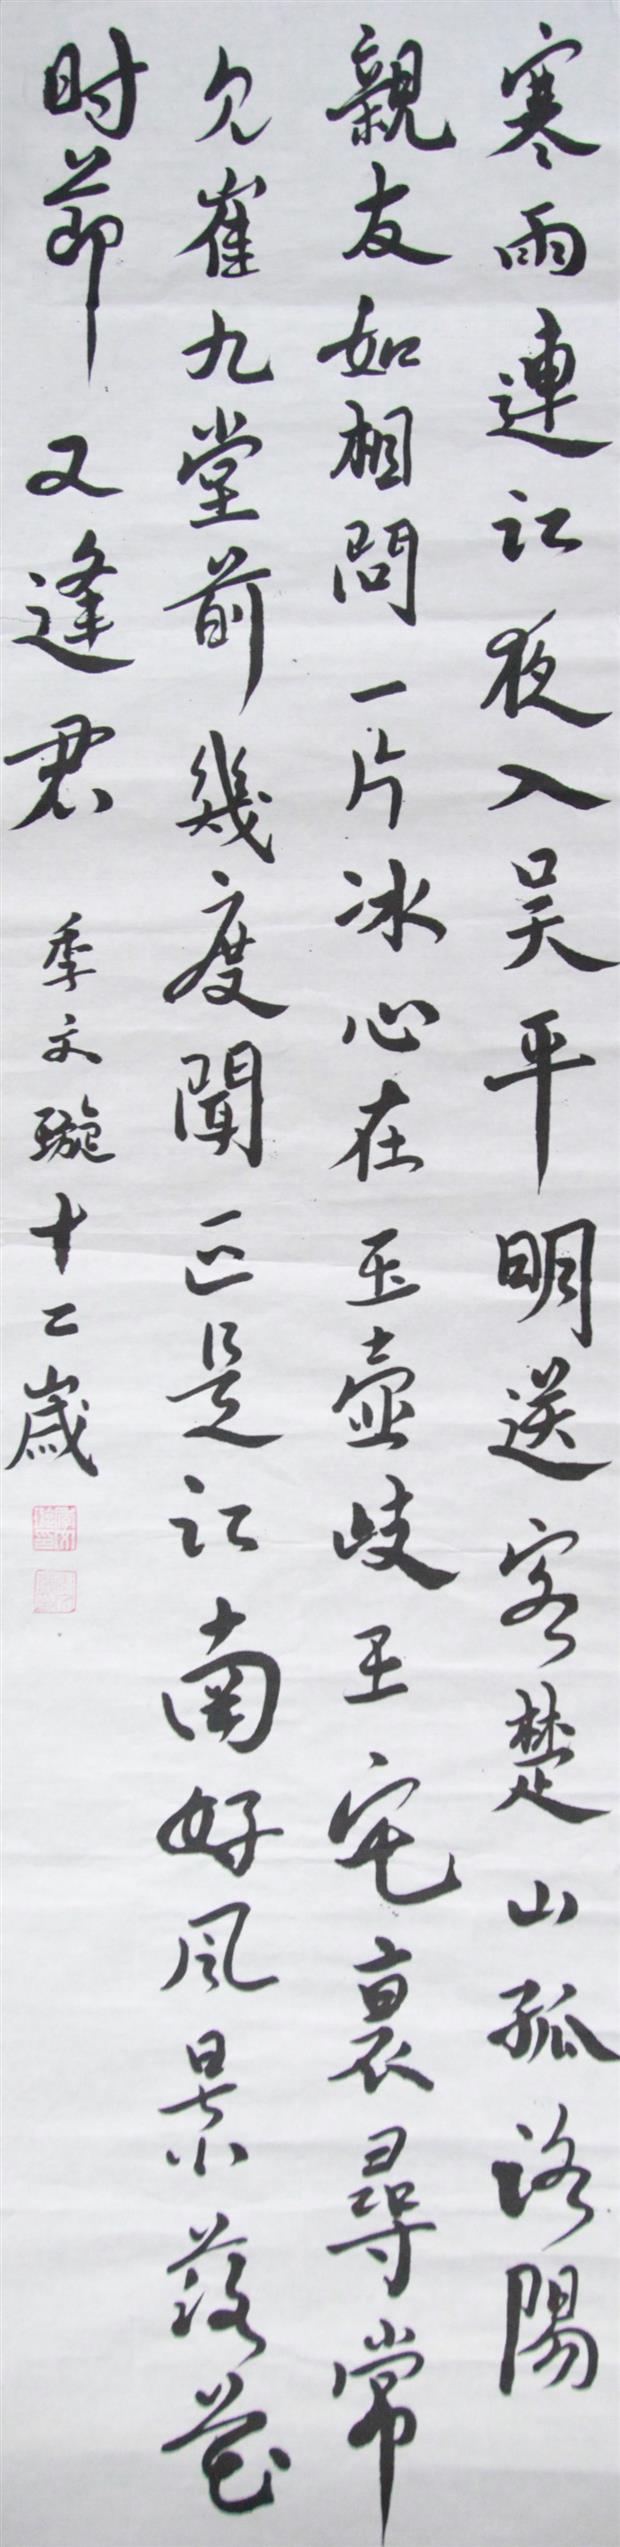 寒雨連江夜入吴平明送客楚山孤洛陽
親友如相問一片冰心在玉壺岐王宅裏尋常
見崔九堂前幾度聞正是江南好風景落花
时節又逢君
季文璇十二歲